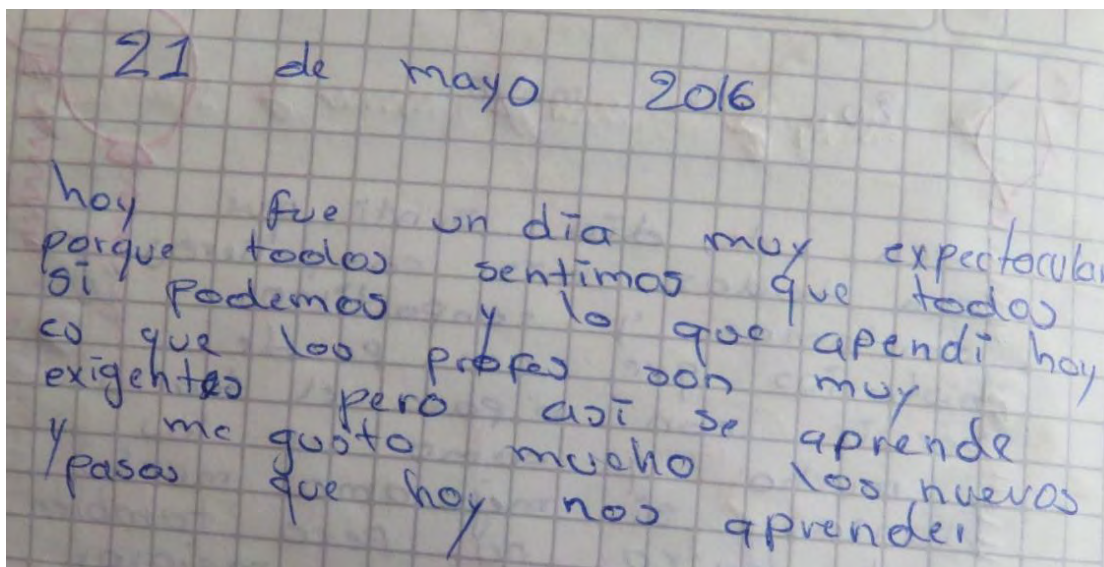 21 de mayo 2016
hoy fue un día muy expectacular
porque todos sentimos que todos
sí podemos y lo que apendí hoy
es que los profes son muy
exigentes pero así se aprende
y me gusto mucho los nuevos
pasos que hoy nos aprender